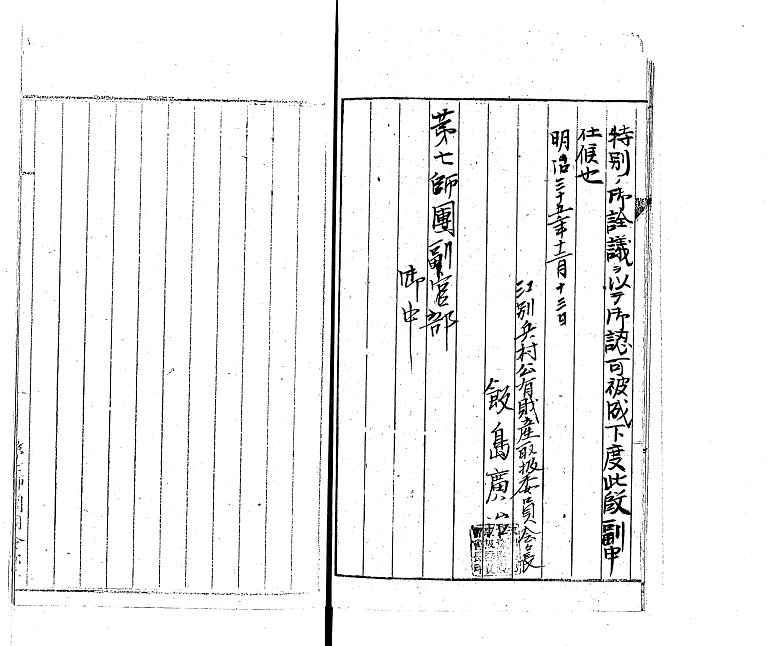 特別ノ御詮議ヲ以テ御認可被成下度此段副申
仕候也
明治三十五年十二月十三日
江別兵村公有財産取扱委員会長
飯島廣
第七師團副官部
御中